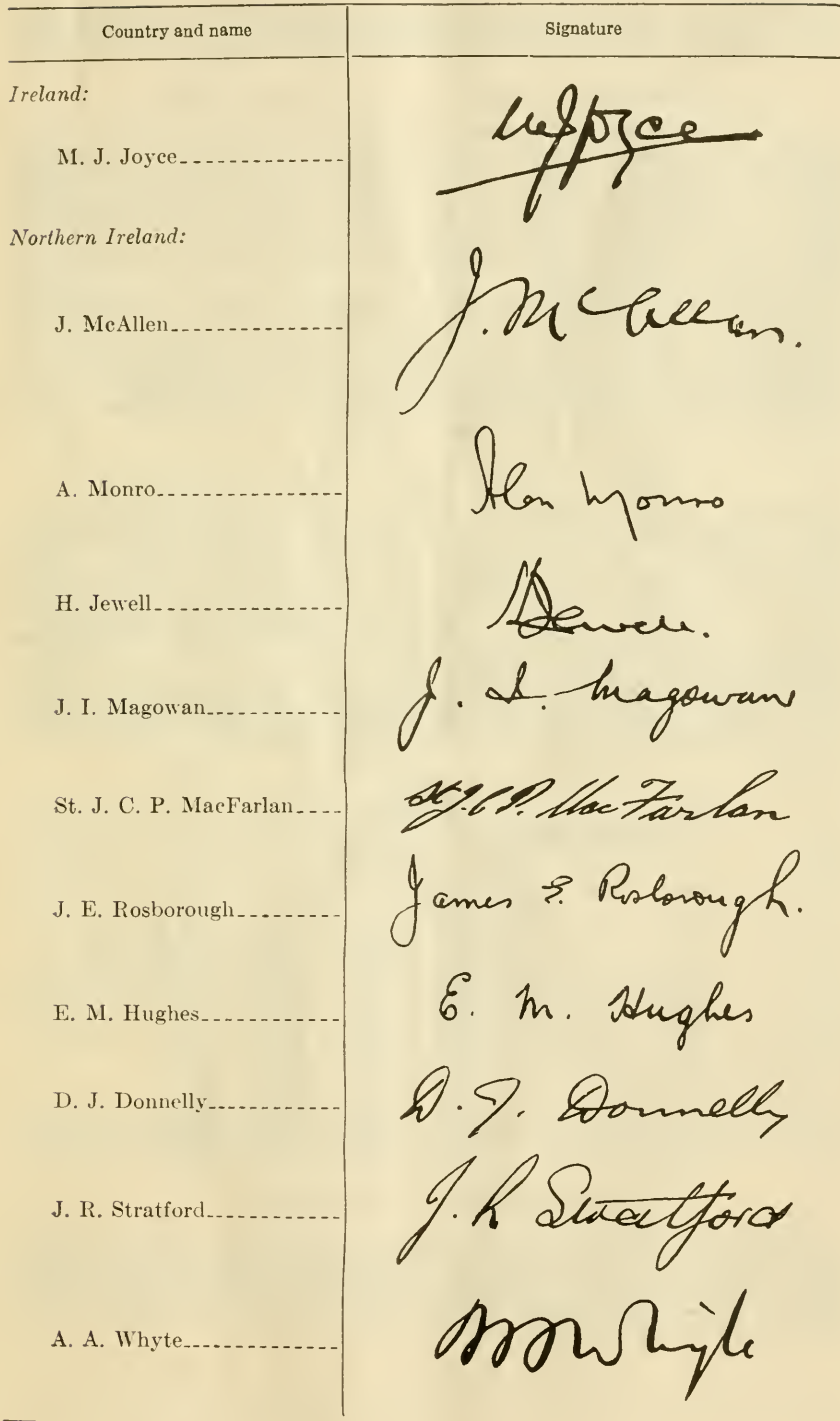 Country and name Signature
Ireland:
M. J. Joyce MJJoyce
Northern Ireland:
J. McAllen J. McAllen.
A. Monro Alan Monro
H. Jewell HJewell.
J. I. Magowan J. I. Magowan
St. J. C. P. MacFarlan St. J. C. P. MacFarlan
J. E. Rosborough James E. Rosborough.
E. M. Hughes E. M. Hughes
D. J. Donnelly D. J. Donnelly
J. R. Stratford J. R Stratford
A. A. Whyte AA Whyte